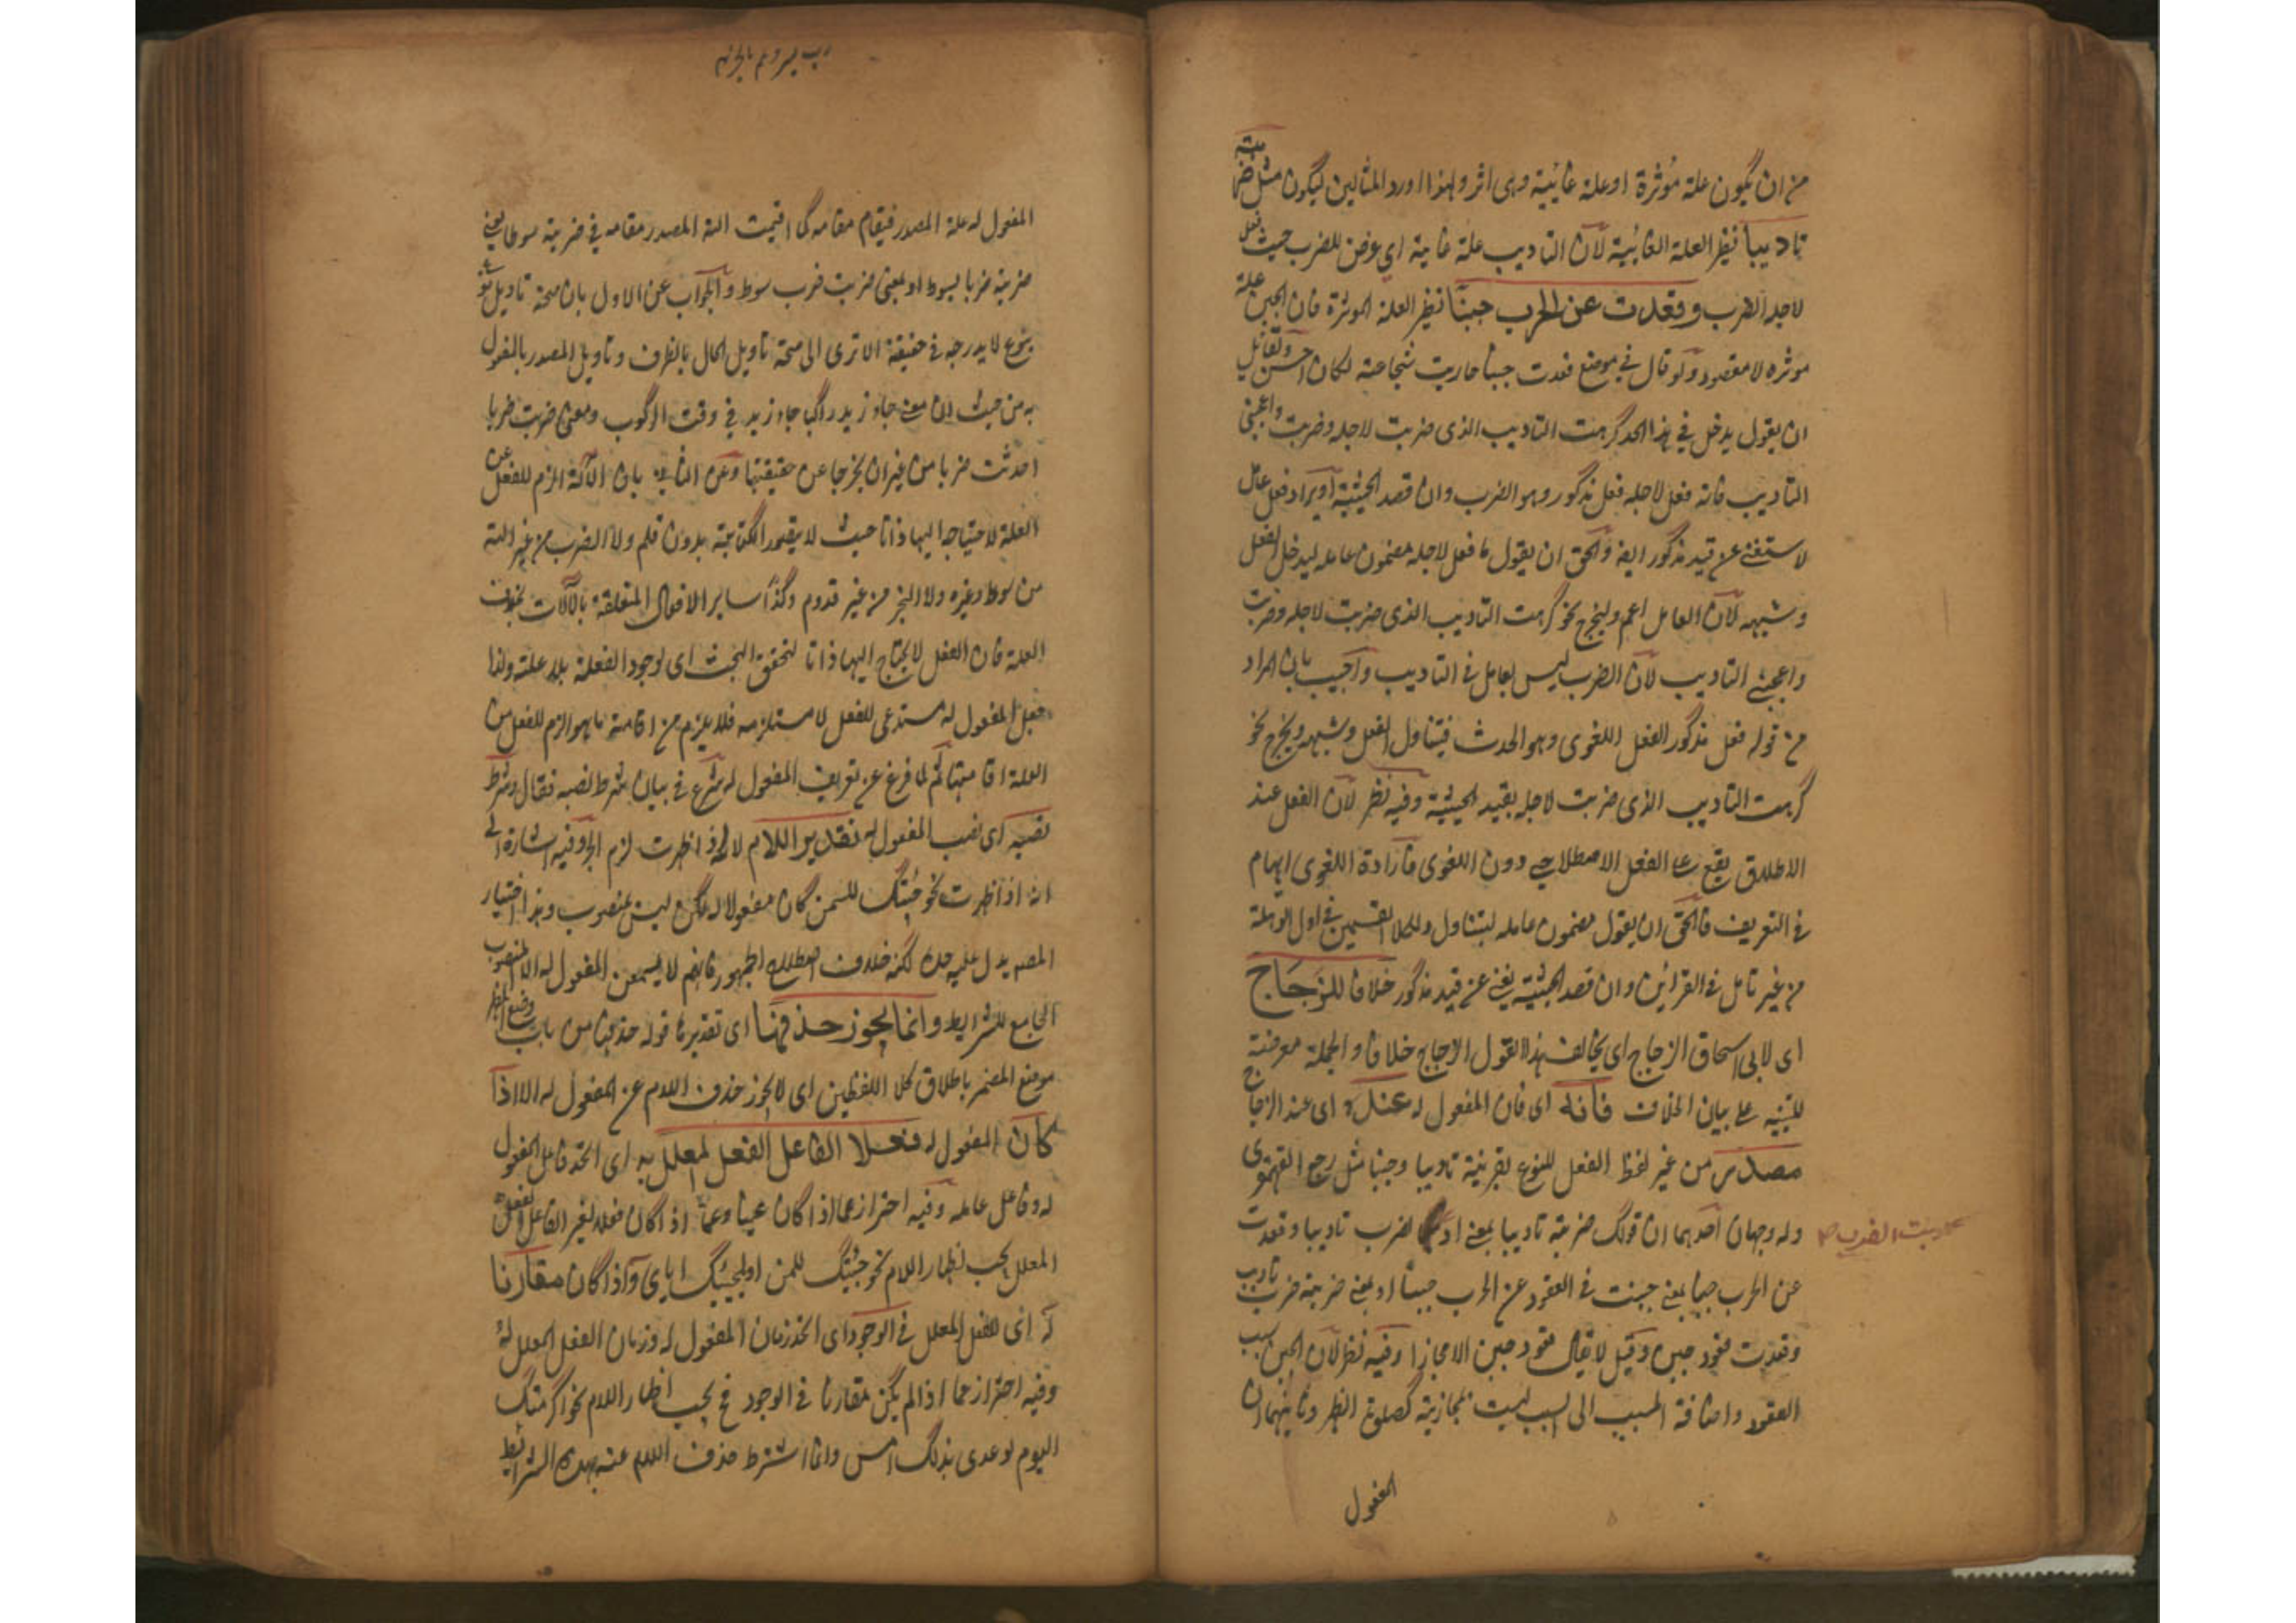 من ان يكون علة مؤثرة او علة غائية وهى اثر ولهذا اورد المثالين ليكون مثل ضربته
تاديبا نظير العلة الغائية لان التاديب علة غاية اى غرض للضرب حيث فعل
لاجله الضرب وقعدت عن الحرب جبنا نظير العلة الموثرة فان الجبن علة
موثره لا مقصود ولو قال فى موضع قعدت جبنا حاربت شجاعة لكان احسن ولقائل
ان يقول يدخل فى هذا الحد كرهت التاديب الذى ضربت لاجله وضربت واعجبنى
التاديب فانه فعل لاجله فعل مذكور وهو الضرب وان قصد الحيثية او يراد فعل عامل
لاستغنى عن قيد مذكور ايضا والحق ان يقول ما فعل لاجله مضمون عامله ليدخل الفعل
وشبهه لان العامل اعم وليخرج نحو كرهت التاديب الذى ضربت لاجله وضربت
واعجبنى التاديب لان الضرب ليس بعامل فى التاديب واجيب بان المراد
من قوله فعل مذكور الفعل اللغوى وهو الحدث فيتناول الفعل وشبهه ويخرج نحو
كرهت التاديب الذى ضربت لاجله بقيد الحيثية وفيه نظر لان الفعل عند
الاطلاق يقع على الفعل الاصطلاحى دون اللغوى فارادة اللغوى ايهام
فى التعريف فالحق ان يقول مضمون عامله ليتناول كلا القسمين فى اول الوهلة
من غير تامل فى القراين وان قصد الحيثية يغنى عن قيد مذكور خلافا للزجاج
اى لابى اسحاق الزجاج اى يخالف هذا القول الزجاج خلافا والجملة معرضة
للتنبيه على بيان الخلاف فانه اى فان المفعول له عنده اى عند الزجاج
مصدر من غير لفظ الفعل للنوع بقرينة تاديبا وجبنا مثل رجع القهقرى
وله وجهان احدهما ان قولك ضربته تاديبا بمعنى ادبته بالضرب تاديبا وقعدت
عن الحرب جبنا بمعنى جبنت فى القعود عن الحرب جبنا او بمعنى ضربته ضرب تاديب
وقعدت قعود جبن وقيل لا يقال قعود جبن الا مجازا وفيه نظر لان الجبن سبب
القعود واضافة المسبب الى السبب ليست بمجازية كصلوة الظهر وثانيهما ان
المفعول
المفعول له علة المصدر فيقام مقامه كما اقيمت آلة المصدر مقامه فى ضربته سوطا يعنى
ضربته ضربا بسوط او بمعنى ضربت ضرب سوط والجواب عن الاول بان صحة تاويل نوع
بنوع لا يدرجه فى حقيقته الا ترى الى صحة تاويل الحال بالظرف وتاويل المصدر بالمفعول
به من حيث ان معنى جاء زيد راكبا جاء زيد فى وقت الركوب ومعنى ضربت ضربا
احدثت ضربا من غير ان يخرجا عن حقيقتها وعن الثانى بان الآلة الزم للفعل عن
العلة لاحتياجه اليها ذاتا حيث لا يتصور الكتابة بدون قلم ولا الضرب من غير آلة
من سوط وغيره ولا النجر من غير قدوم وكذا ساير الافعال المتعلقة بالآلات بخلاف
العلة فان الفعل لا يحتاج اليها ذاتا لتحقق العبث اى لوجود الفعلة بلا علة ولذا
فعل المفعول له مستدعى للفعل لا مستلزمه فلا يلزم من اقامة ما هو الزم للفعل من
العلة اقامتها ثم لما فرغ عن تعريف المفعول له شرع فى بيان شرط نصبه فقال وشرط
نصبه اى نصب المفعول له تقدير اللام لانه اذا ظهرت لزم الجر وفيه اشارة الى
انه اذا ظهرت نحو جئتك للسمن كان مفعولا له لكن ليس بمنصوب وهذا اختيار
المصـ يدل عليه حده لكنه خلاف اصطلاح الجمهور فانهم لا يسمون المفعول له الا المنصوب
الجامع للشرايط وانما يجوز حذفها اى تقديرها قوله حذفها من باب وضع المظهر
موضع المضمر باطلاق كلا اللفظين اى لا يجوز حذف اللام عن المفعول له الا اذا
كان المفعول له فعلا لفاعل الفعل المعلل به اى اتحد فاعل المفعول
له وفاعل عامله وفيه احتراز عما اذا كان عينا وعما اذا كان فعلا لغير الفاعل الفعل
المعلل يجب اظهار اللام نحو جئتك للسمن او لمجيئك اياى واذا كان مقارنا
له اى للفعل المعلل فى الوجود اى اتحد زمان المفعول له وزمان الفعل المعلل له
وفيه احتراز عما اذا لم يكن مقارنا فى الوجود فح يجب اظهار اللام نحو اكرمتك
اليوم لوعدى بذلك امس وانما اشترط حذف اللام عنه بهذه الشرائط